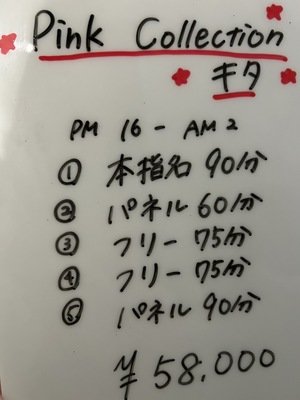 Pink Collection
キタ
PM 16 - AM 2
① 本指名 90分
② パネル 60分
③ フリー 75分
④ フリー 75分
⑤ パネル 90分
¥58.000